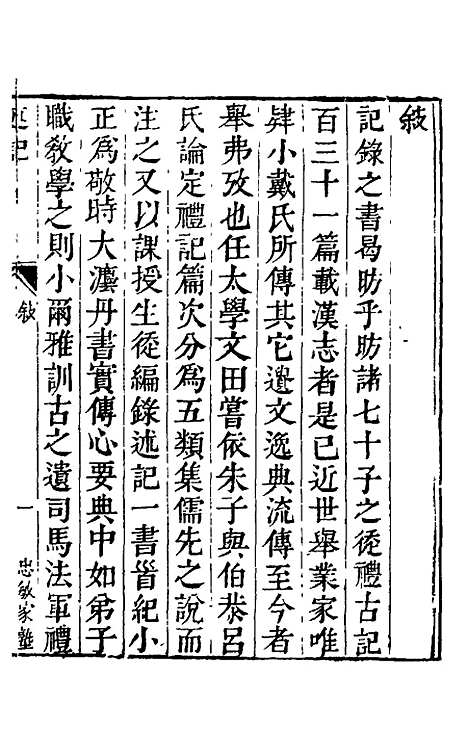 敍
記錄之書曷昉乎昉諸七十子之後禮古記
百三十一篇載漢志者是已近世舉業家唯
肄小戴氏所傳其它遺文逸典流傳至今者
舉弗攷也任太學文田嘗依朱子與伯恭呂
氏論定禮記篇次分爲五類集儒先之說而
注之又以課授生徒編錄述記一書首紀小
正爲敬時大灋丹書實傳心要典中如弟子
職敎學之則小爾雅訓古之遺司馬法軍禮
述記
敍
一
忠敏家塾